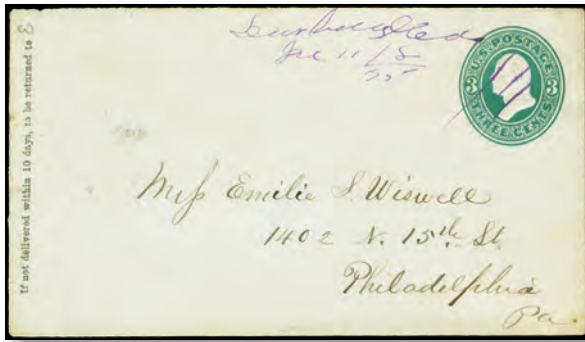 If not delivered within 10 days, to be returned to
U.S. POSTAGE
3 3
THREE CENTS
Miss Emilie S. Wiswell
1402 N. 15th St.
Philadelphia
Pa